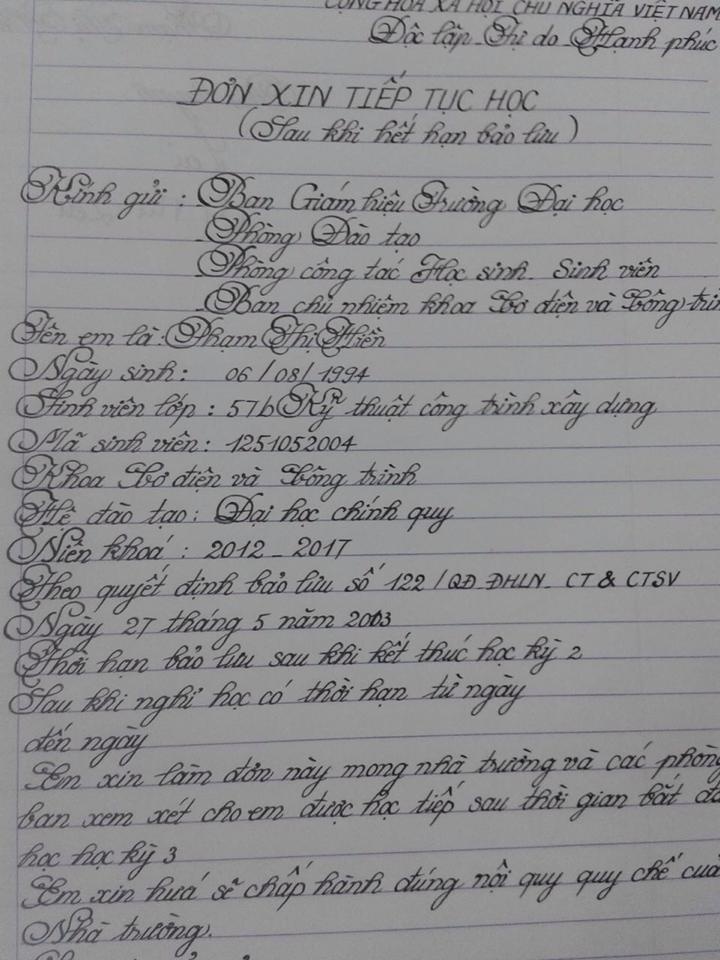 CỘNG HÒA XÃ HỘI CHỦ NGHĨA VIỆT NAM
Độc lập - Tự do - Hạnh phúc
ĐƠN XIN TIẾP TỤC HỌC
(Sau khi hết hạn bảo lưu)
Kính gửi : - Ban Giám hiệu Trường Đại học
- Phòng Đào tạo
- Phòng công tác Học sinh - Sinh viên
- Ban chủ nhiệm khoa Cơ điện và Công trìn
Tên em là : Phạm Thị Hiền
Ngày sinh : 06 / 08 / 1994
Sinh viên lớp : 57b Kỹ thuật công trình xây dựng
Mã sinh viên : 1251052004
Khoa Cơ điện và Công trình
Hệ đào tạo : Đại học chính quy
Niên khoá : 2012 - 2017
Theo quyết định bảo lưu số 122 / QĐ. ĐHLN - CT & CTSV
Ngày 27 tháng 5 năm 2003
Thời hạn bảo lưu sau khi kết thúc học kỳ 2
Sau khi nghỉ học có thời hạn từ ngày
đến ngày
Em xin làm đơn này mong nhà trường và các phòng
ban xem xét cho em được học tiếp sau thời gian bắt đầ
học học kỳ 3
Em xin hứa sẽ chấp hành đúng nội quy quy chế của
Nhà trường.